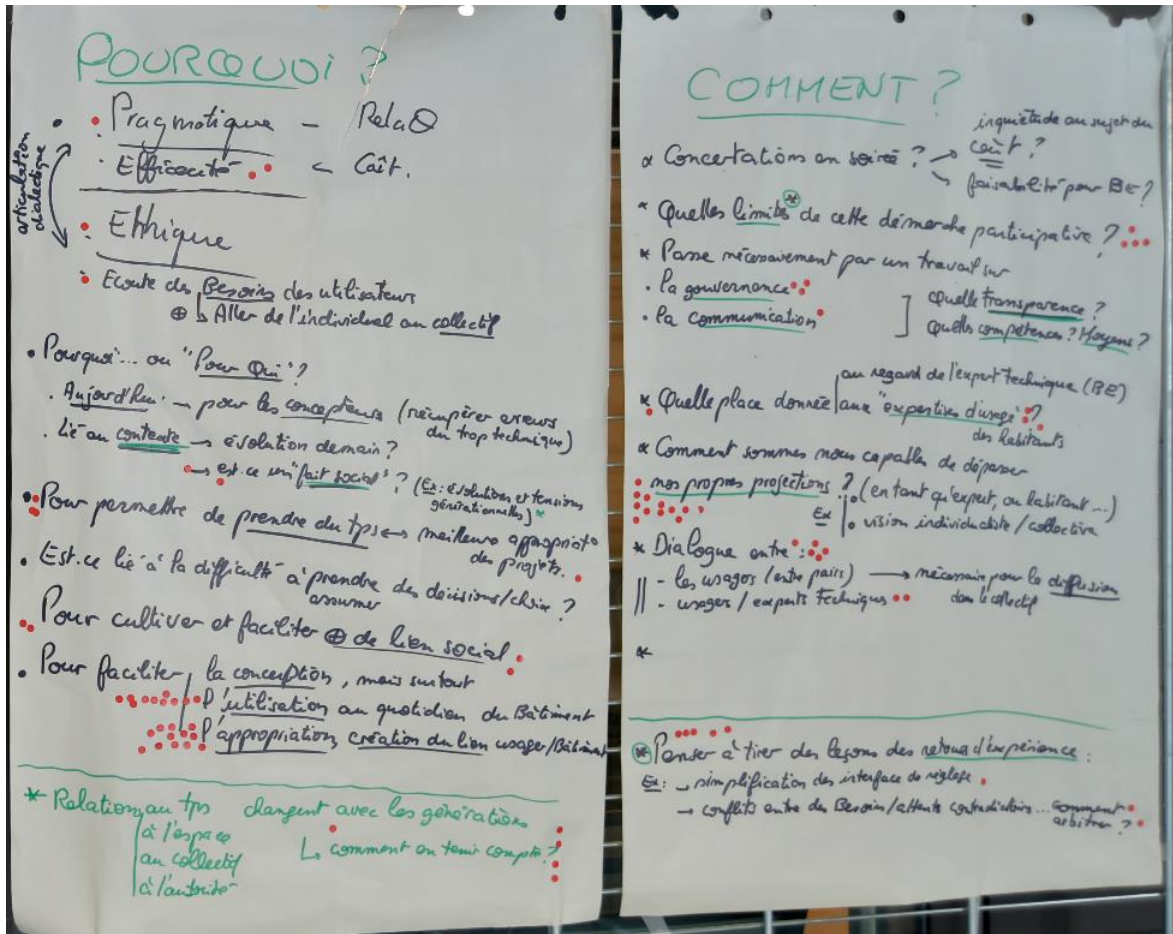 POURQUOI ?
• Pragmatique – Rela
• Efficacité ← Coût.
articulation dialectique
• Ethique
• Ecoute des Besoins des utilisateurs
⊕ ↳ Aller de l'individuel au collectif
• Pourquoi... ou "Pour Qui" ?
. Aujourd'hui → pour les concepteurs (récupérer erreurs
du trop technique)
. Lié au contexte → évolution demain ?
→ est-ce un "fait social" ? (Ex : évolutions et tensions
générationnelles) *
• Pour permettre de prendre du tps ↔ meilleure appropriat°
des projets.
• Est-ce lié à la difficulté à prendre des décisions/choix ?
assumer
• Pour cultiver et faciliter ⊕ de lien social
• Pour faciliter la conception, mais surtout
l'utilisation au quotidien du Bâtiment
l'appropriation, création du lien usager/Bâtiment
* Relation au tps changent avec les générations
à l'espace ↳ comment en tenir compte ?
au collectif
à l'autorité
COMMENT ?
inquiétude au sujet du
* Concertations en soirée ? → coût ?
→ faisabilité pour BE ?
* Quelles limites * de cette démarche participative ?
* Passe nécessairement par un travail sur
. la gouvernance ] Quelle transparence ?
. la communication Quelles compétences ? Moyens ?
au regard de l'expert technique (BE)
* Quelle place donnée aux "expertises d'usage" ?
des habitants
* Comment sommes nous capables de dépasser
nos propres projections ? . (en tant qu'expert, ou habitant ...)
Ex . vision individualiste / collective
* Dialogue entre :
- les usagers (entre pairs) → nécessaire pour la diffusion
dans le collectif
- usagers / experts techniques
*
* Penser à tirer des leçons des retours d'expérience :
Ex : → simplification des interface de réglage
→ conflits entre des Besoins/attentes contradictoires ... comment
arbitrer ?